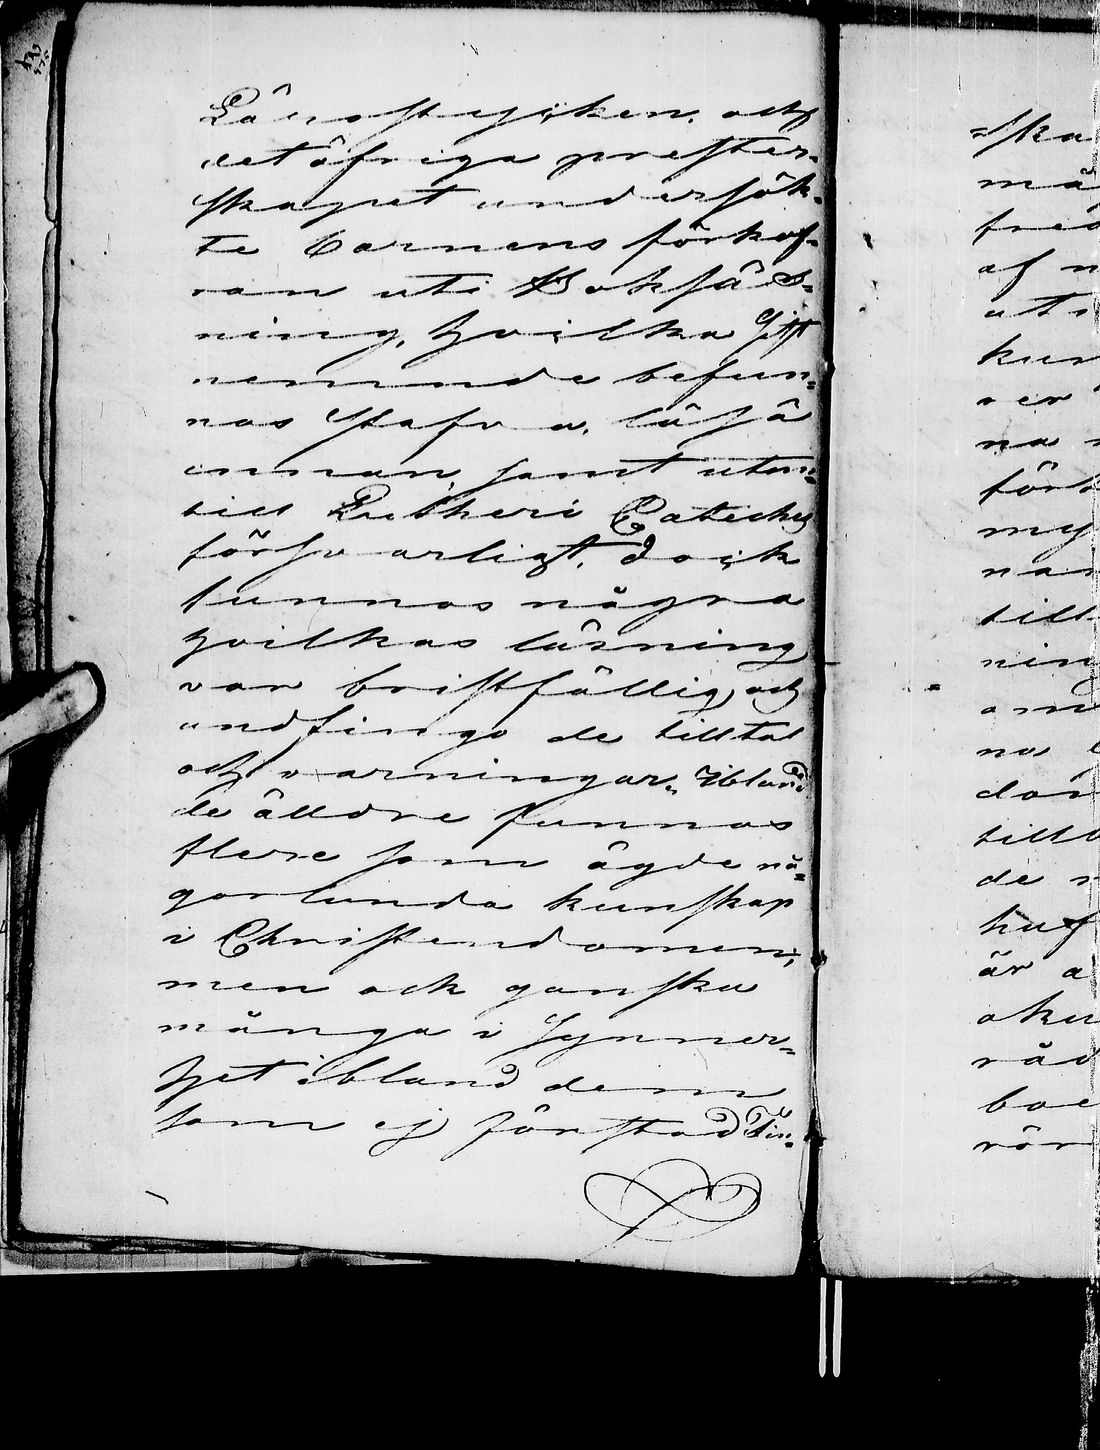 Länsstycken, och
det öfriga prester-
skapet undersök-
te barnens förkof-
ran uti Bokläs-
ning, hvilka sist
nemnde befun-
nos stafva, läsa
innan, samt utan-
till Lutheri Cateches
försvarligt, dock
funnos några
hvilkas läsning
var bristfällig, och
undfingo de tilltal
och varningar. Ibland
de äldre funnos
flere som ägde nå-
gorlunda kunskap
i Christendomen,
men ock ganska
många i synner-
het ibland dem
som ej förstod Fin-
ska
må
fred
af
ut
kun
ver
na
för
my
nar
till
ning
om
na
dom
till
de
huf
är a
oku
råd
boe
rör